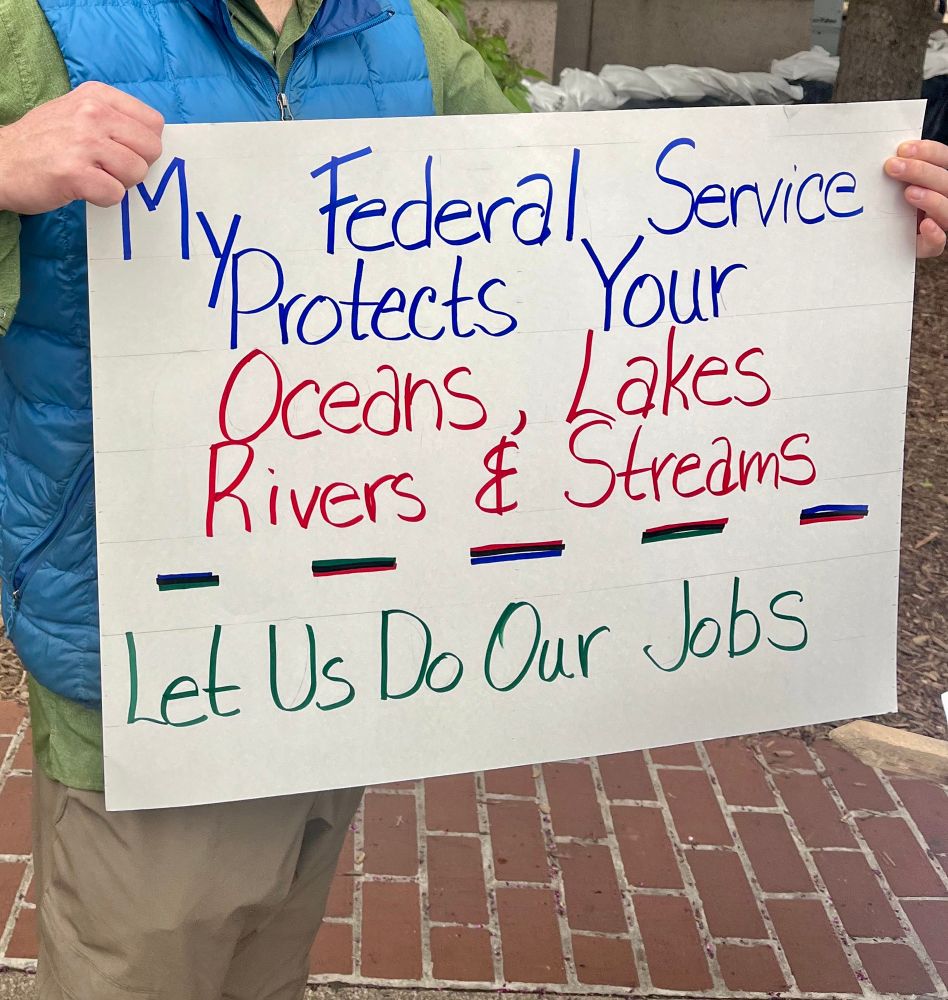 My Federal Service
Protects Your
Oceans, Lakes
Rivers & Streams
Let Us Do Our Jobs